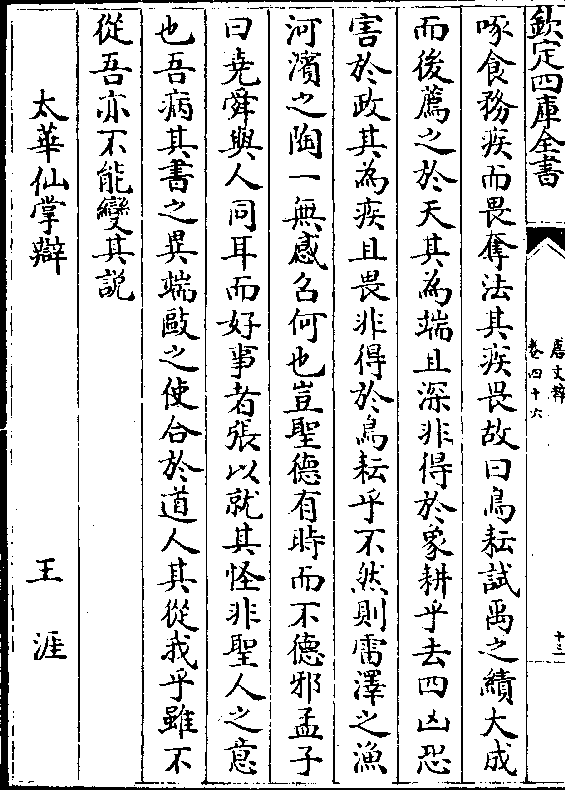 欽定四庫全書
唐文粹
卷四十六
十三
啄食務疾而畏奪法其疾畏故曰鳥耘試禹之績大成
而後薦之於天其為端且深非得於象耕乎去四凶恐
害於政其為疾且畏非得於鳥耘乎不然則雷澤之漁
河濱之陶一無感召何也豈聖德有時而不德邪孟子
曰堯舜與人同耳而好事者張以就其怪非聖人之意
也吾病其書之異端敺之使合於道人其從我乎雖不
從吾亦不能變其説
太華仙掌辯
王涯